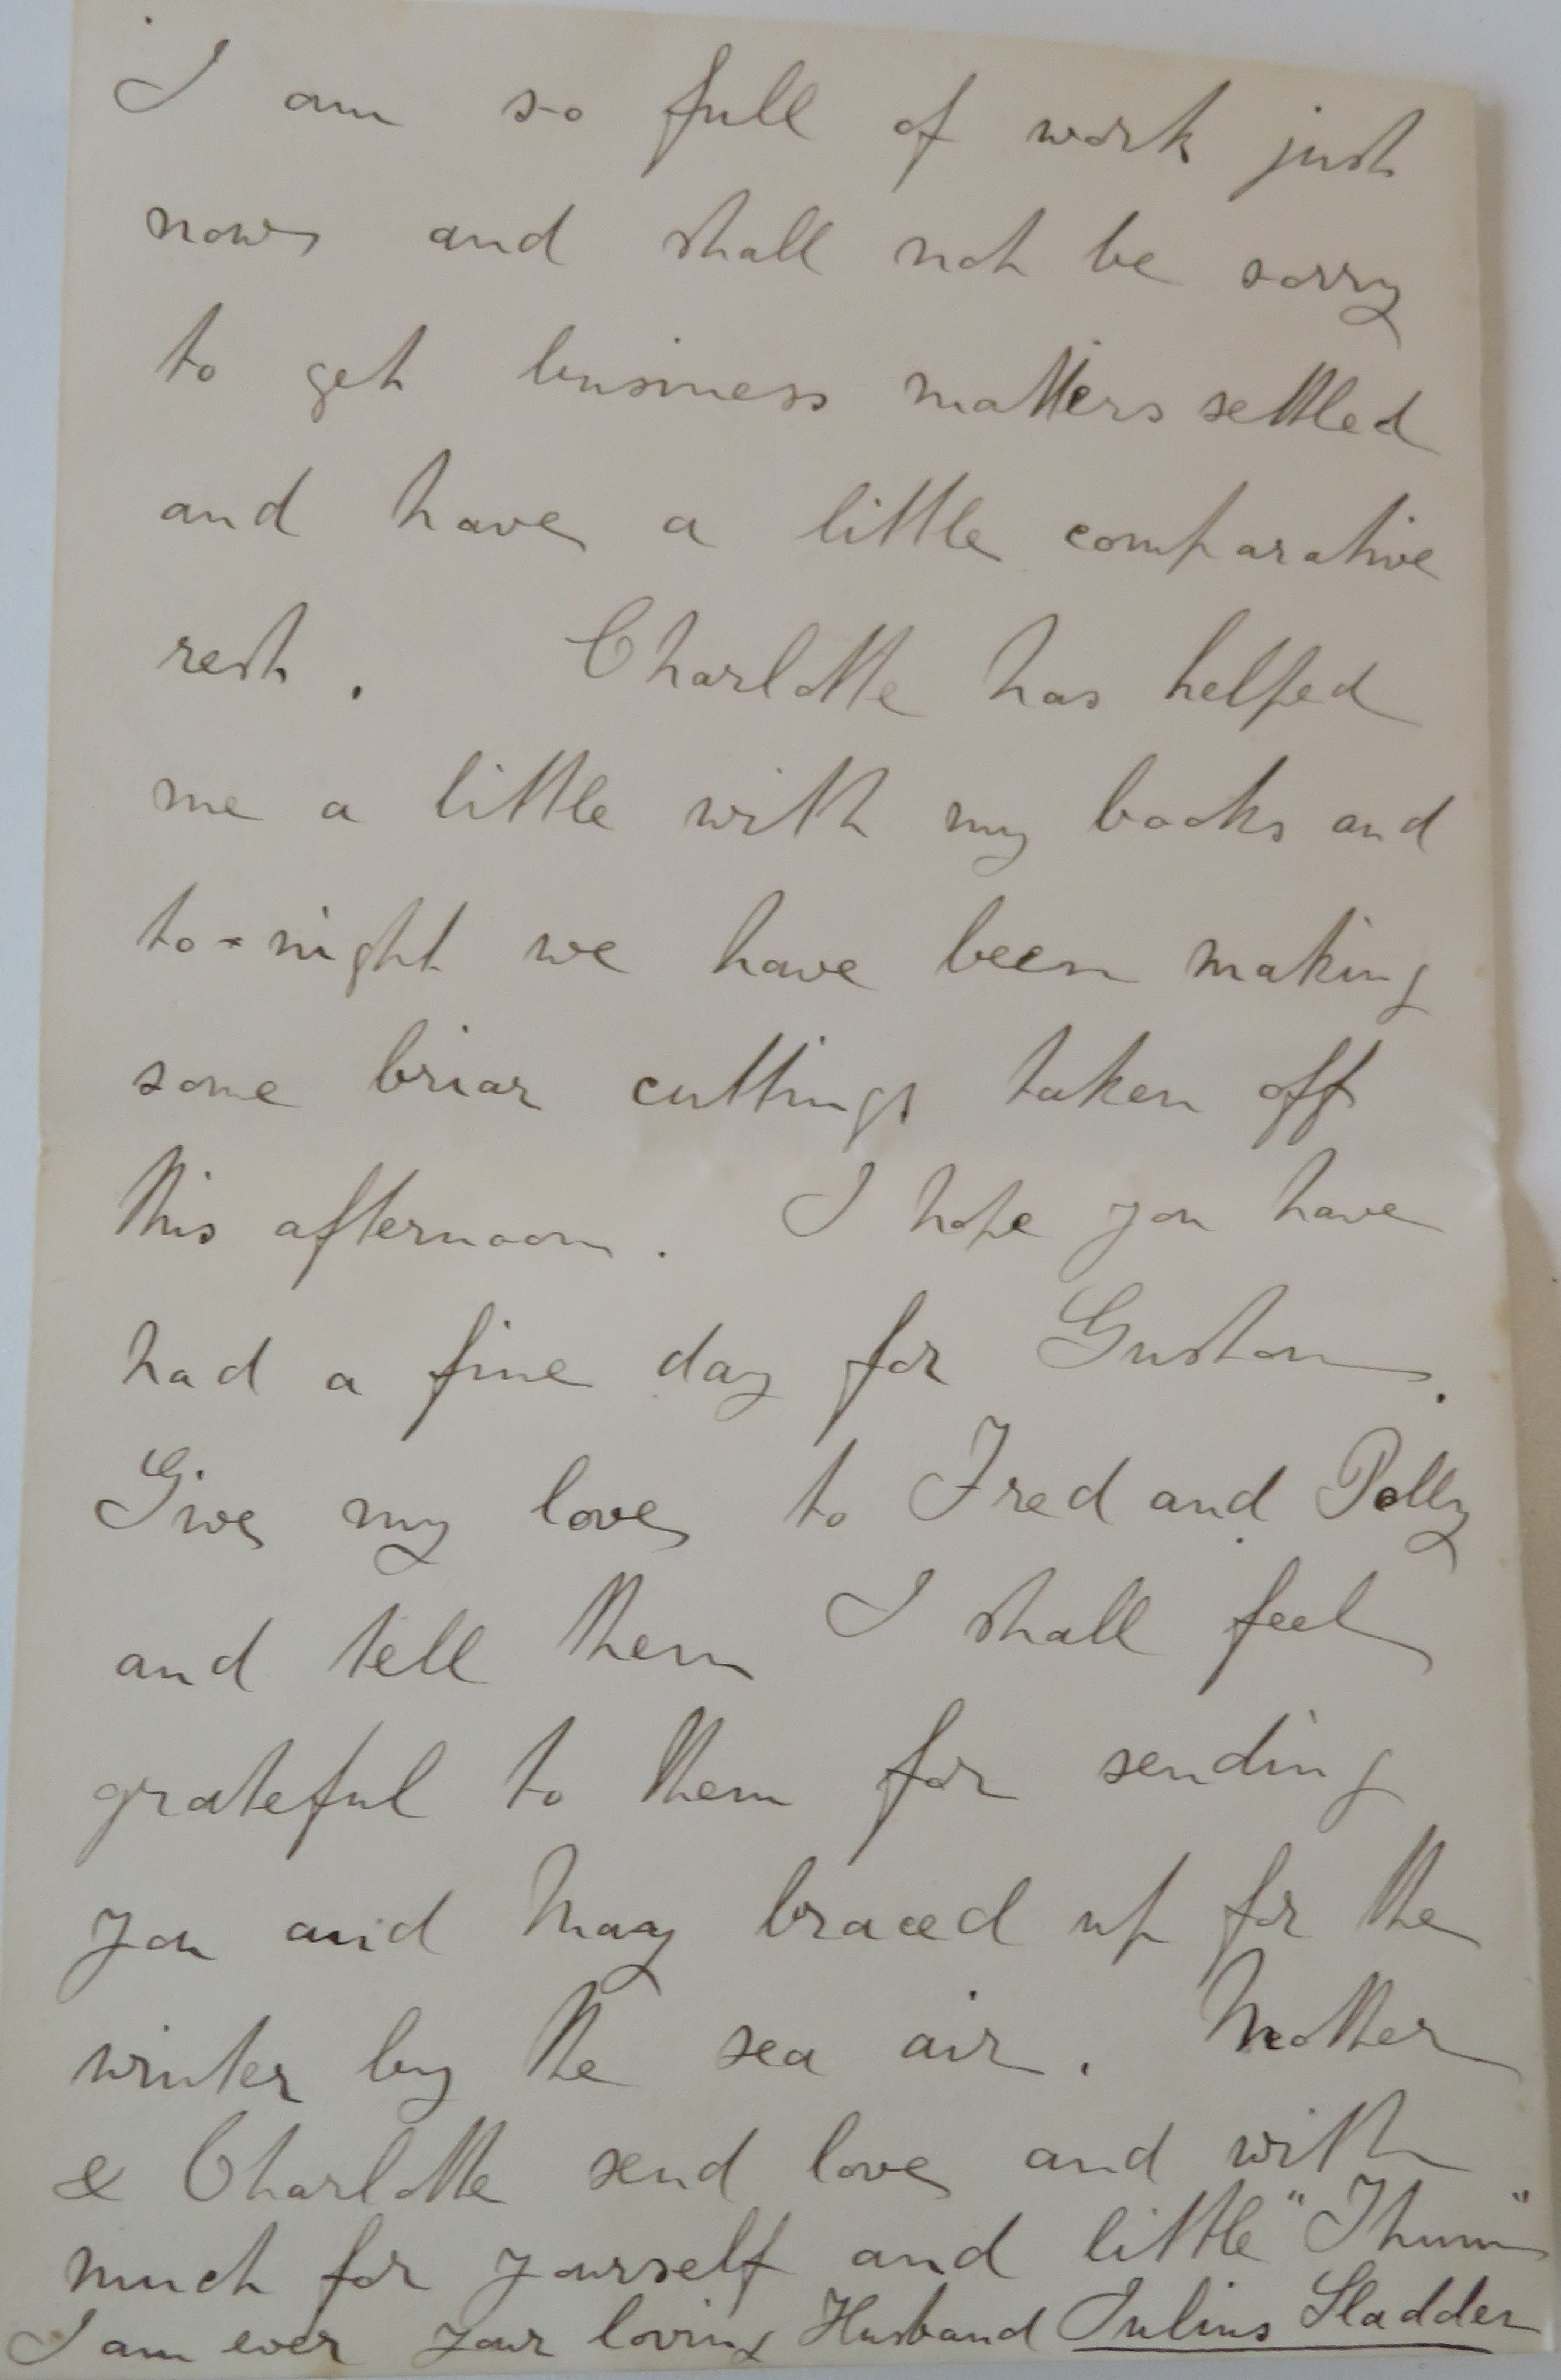 I am so full of work just
now and shall not be sorry
to get business matters settled
and have a little comparative
rest. Charlotte has helped
me a little with my books and
to-night we have been making
some briar cuttings taken off
this afternoon. I hope you have
had a fine day for Guston.
Give my love to Fred and Polly
and tell them I shall feel
grateful to them for sending
you and May braced up for the
winter by the sea air. Mother
& Charlotte send love and with
much for yourself and little "Thum"
I am ever your loving Husband Julius Sladden